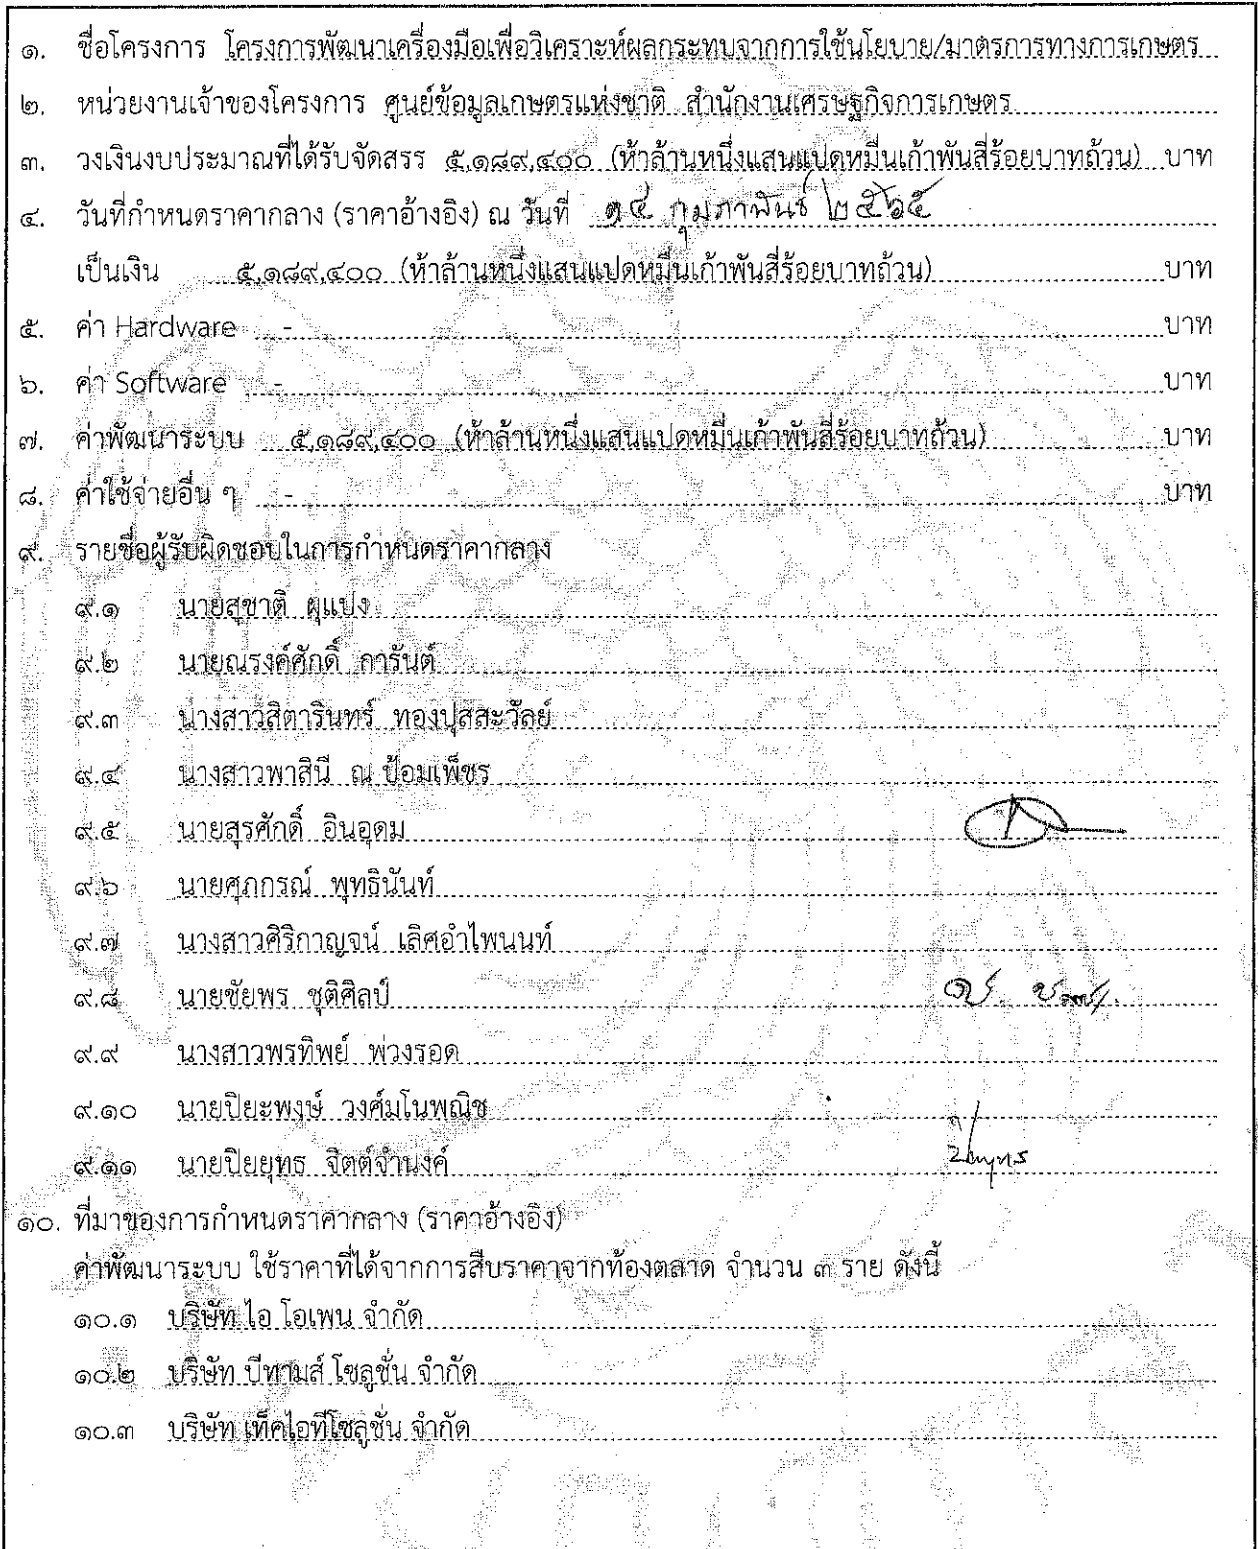 ๑. ชื่อโครงการ โครงการพัฒนาเครื่องมือเพื่อวิเคราะห์ผลกระทบจากการใช้นโยบาย/มาตรการทางการเกษตร
๒. หน่วยงานเจ้าของโครงการ ศูนย์ข้อมูลเกษตรแห่งชาติ สำนักงานเศรษฐกิจการเกษตร
๓. วงเงินงบประมาณที่ได้รับจัดสรร ๕,๑๘๙,๔๐๐ (ห้าล้านหนึ่งแสนแปดหมื่นเก้าพันสี่ร้อยบาทถ้วน) บาท
๔. วันที่กำหนดราคากลาง (ราคาอ้างอิง) ณ วันที่ ๑๔ กุมภาพันธ์ ๒๕๖๕
เป็นเงิน ๕,๑๘๙,๔๐๐ (ห้าล้านหนึ่งแสนแปดหมื่นเก้าพันสี่ร้อยบาทถ้วน) บาท
๕. ค่า Hardware - บาท
๖. ค่า Software - บาท
๗. ค่าพัฒนาระบบ ๕,๑๘๙,๔๐๐ (ห้าล้านหนึ่งแสนแปดหมื่นเก้าพันสี่ร้อยบาทถ้วน) บาท
๘. ค่าใช้จ่ายอื่น ๆ - บาท
๙. รายชื่อผู้รับผิดชอบในการกำหนดราคากลาง
๙.๑ นายสุชาติ ผุแปง
๙.๒ นายณรงค์ศักดิ์ การันต์
๙.๓ นางสาวสิตารินทร์ ทองปุสสะวัลย์
๙.๔ นางสาวพาสินี ณ ป้อมเพ็ชร
๙.๕ นายสุรศักดิ์ อินอุดม
๙.๖ นายศุภกรณ์ พุทธินันท์
๙.๗ นางสาวศิริกาญจน์ เลิศอำไพนนท์
๙.๘ นายชัยพร ชุติศิลป์
๙.๙ นางสาวพรทิพย์ พ่วงรอด
๙.๑๐ นายปิยะพงษ์ วงศ์มโนพณิช
๙.๑๑ นายปิยยุทธ จิตต์จำนงค์
๑๐. ที่มาของการกำหนดราคากลาง (ราคาอ้างอิง)
ค่าพัฒนาระบบ ใช้ราคาที่ได้จากการสืบราคาจากท้องตลาด จำนวน ๓ ราย ดังนี้
๑๐.๑ บริษัท ไอ โอเพน จำกัด
๑๐.๒ บริษัท บีทามส์ โซลูชั่น จำกัด
๑๐.๓ บริษัท เท็คไอทีโซลูชั่น จำกัด